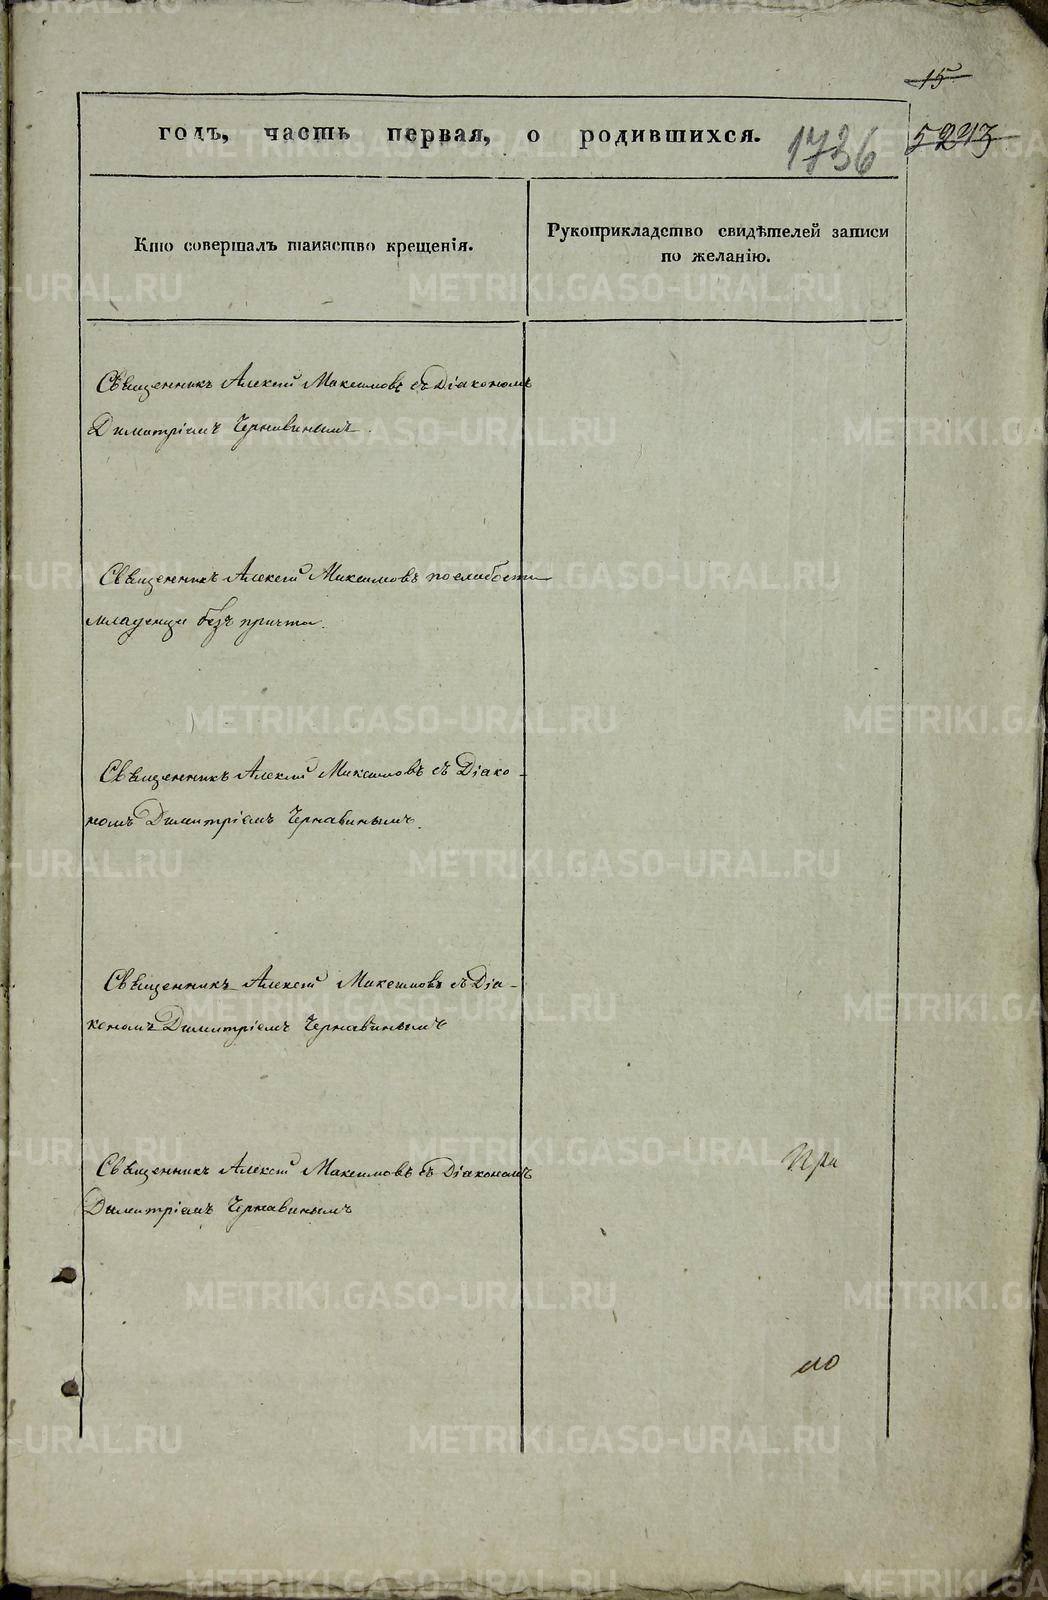 15
годъ, часть первая, о родившихся. 1736 5243
Кто совершалъ таинство крещенія.
Рукоприкладство свидѣтелей записи
по желанію.
Священникъ Алексій Максимовъ съ Діакономъ
Димитріемъ Чернавинымъ.
Священникъ Алексій Максимовъ по слабости
младенца безъ причта.
Священникъ Алексій Максимовъ съ Діако-
номъ Димитріемъ Чернавинымъ.
Священникъ Алексій Максимовъ съ Діа-
кономъ Димитріемъ Чернавинымъ
Священникъ Алексій Максимовъ съ Діакономъ
Димитріемъ Чернавинымъ
METRIKI.GASO-URAL.RU